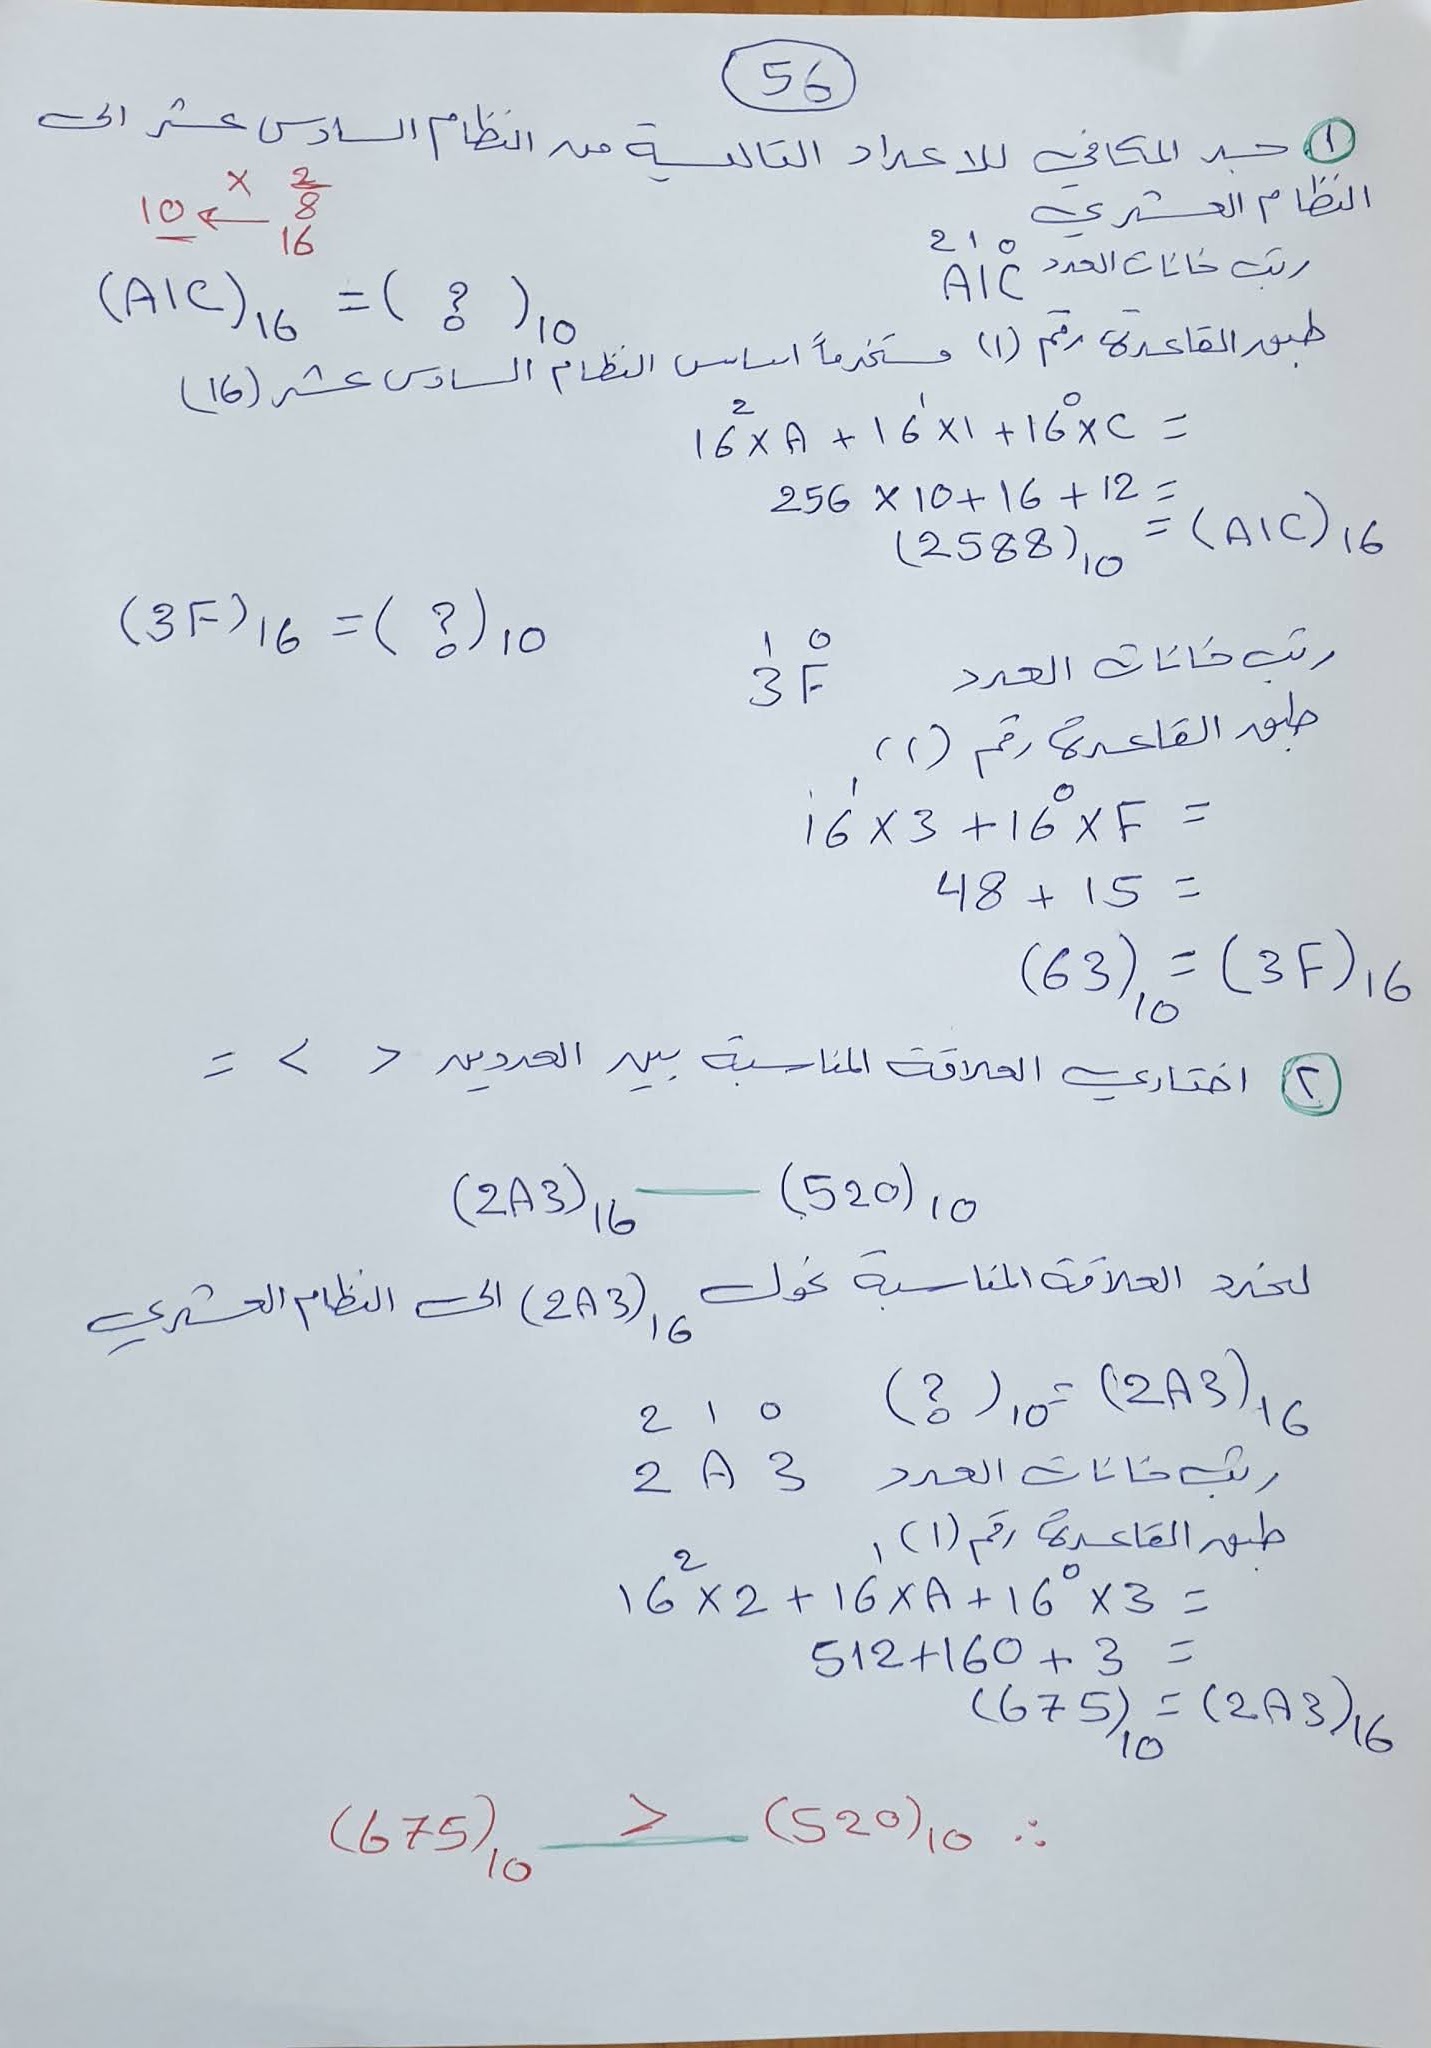 56
١ جد المكافئ للاعداد التالية من النظام السادس عشر الى
النظام العشري
2
8
16
× ←
10
2 1 0
رتب خانات العدد A1C
(A1C)16 = ( ? )10
طبق القاعدة رقم (1) مستخدماً اساس النظام السادس عشر (16)
16² × A + 16¹ × 1 + 16⁰ × C =
256 × 10 + 16 + 12 =
(2588)10 = (A1C)16
(3F)16 = ( ? )10
1 0
رتب خانات العدد 3F
طبق القاعدة رقم (1)
16¹ × 3 + 16⁰ × F =
48 + 15 =
(63)10 = (3F)16
٢ اختاري العلاقة المناسبة بين العددين < > =
(2A3)16 — (520)10
لتحدد العلاقة المناسبة نحول (2A3)16 الى النظام العشري
( ? )10 = (2A3)16
2 1 0
رتب خانات العدد 2 A 3
طبق القاعدة رقم (1)
16² × 2 + 16¹ × A + 16⁰ × 3 =
512 + 160 + 3 =
(675)10 = (2A3)16
(675)10 > (520)10 ∴